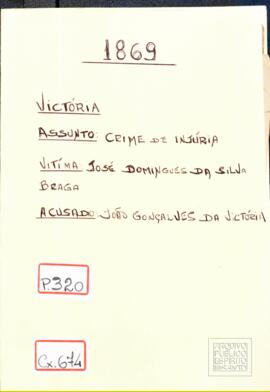 1869
VICTÓRIA
ASSUNTO: CRIME DE INJÚRIA
VITÍMA: JOSÉ DOMINGUES DA SILVA
BRAGA
ACUSADO: JOÃO GONÇALVES DA VICTÓRIA
P.320
Cx.674
ARQUIVO
PÚBLICO
ESPÍRITO
SANTO